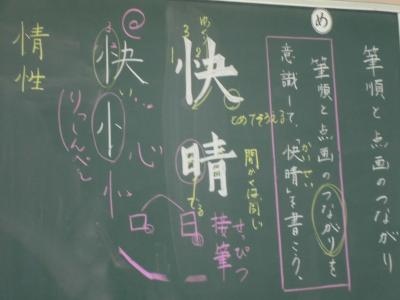 筆順と点画のつながり
め
筆順と点画のつながりを
意識して、「快晴」を書こう。
かいせい
快晴
とめてそろえる
間かくは同じ
接筆
せっぴつ
日
口
快
忄
心
りっしんべん
情性